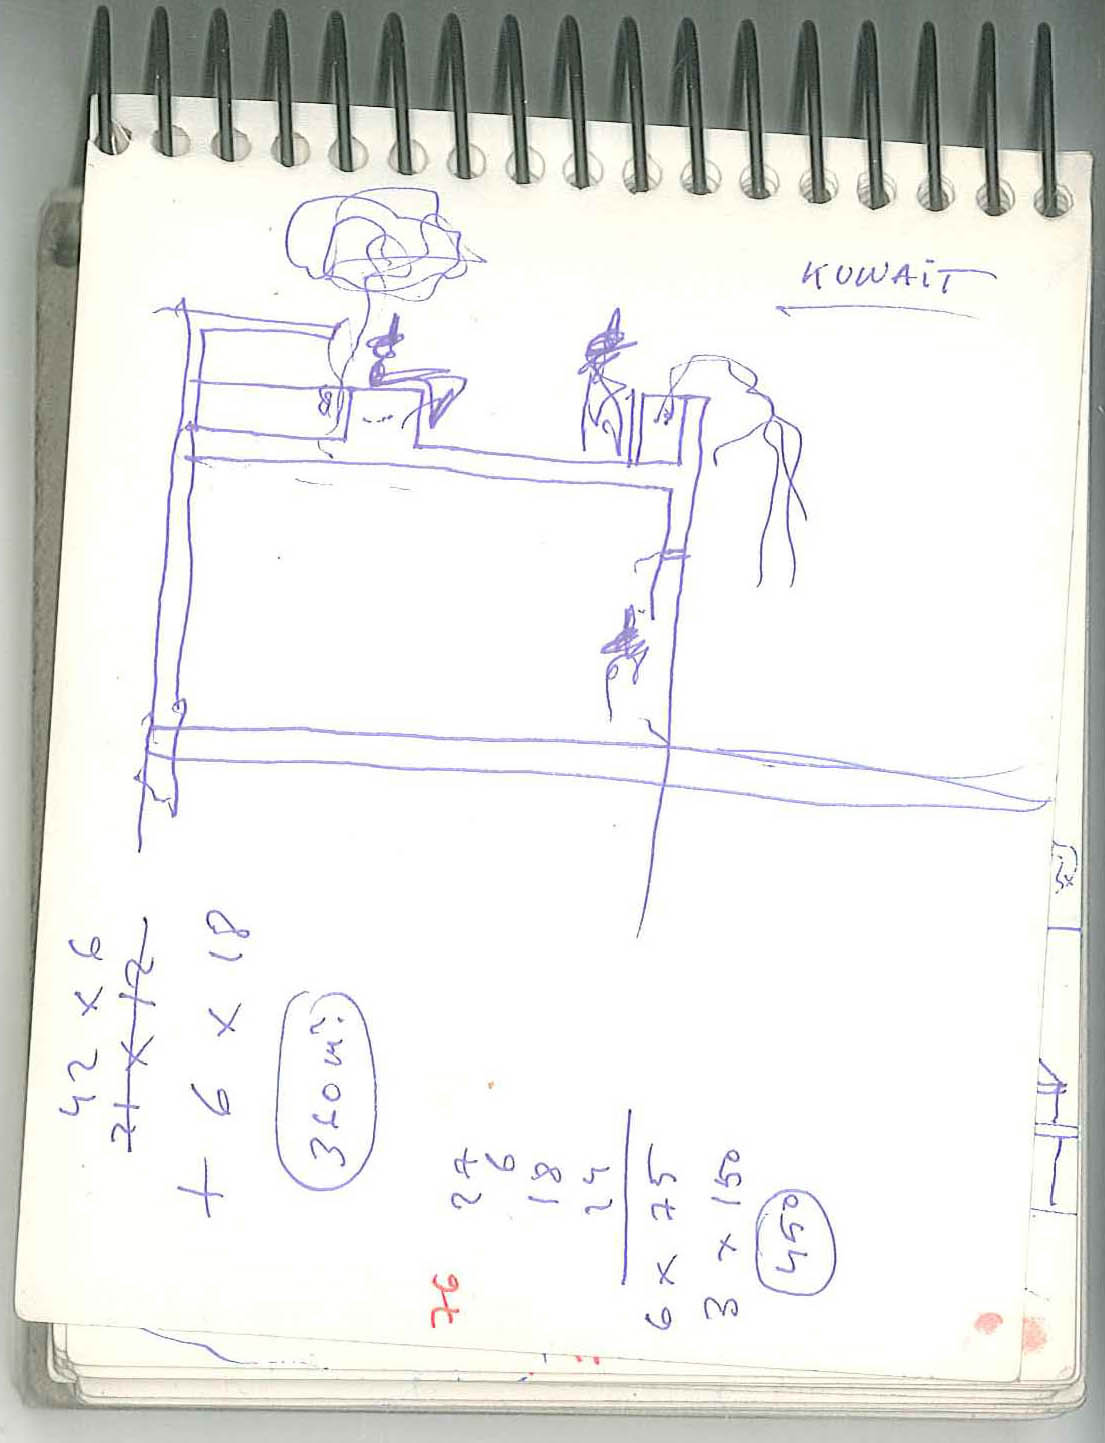 KUWAiT
42 x 6
21 x 12
+ 6 x 18
360 m²
27
6
18
24
6 x 75
3 x 150
450
76